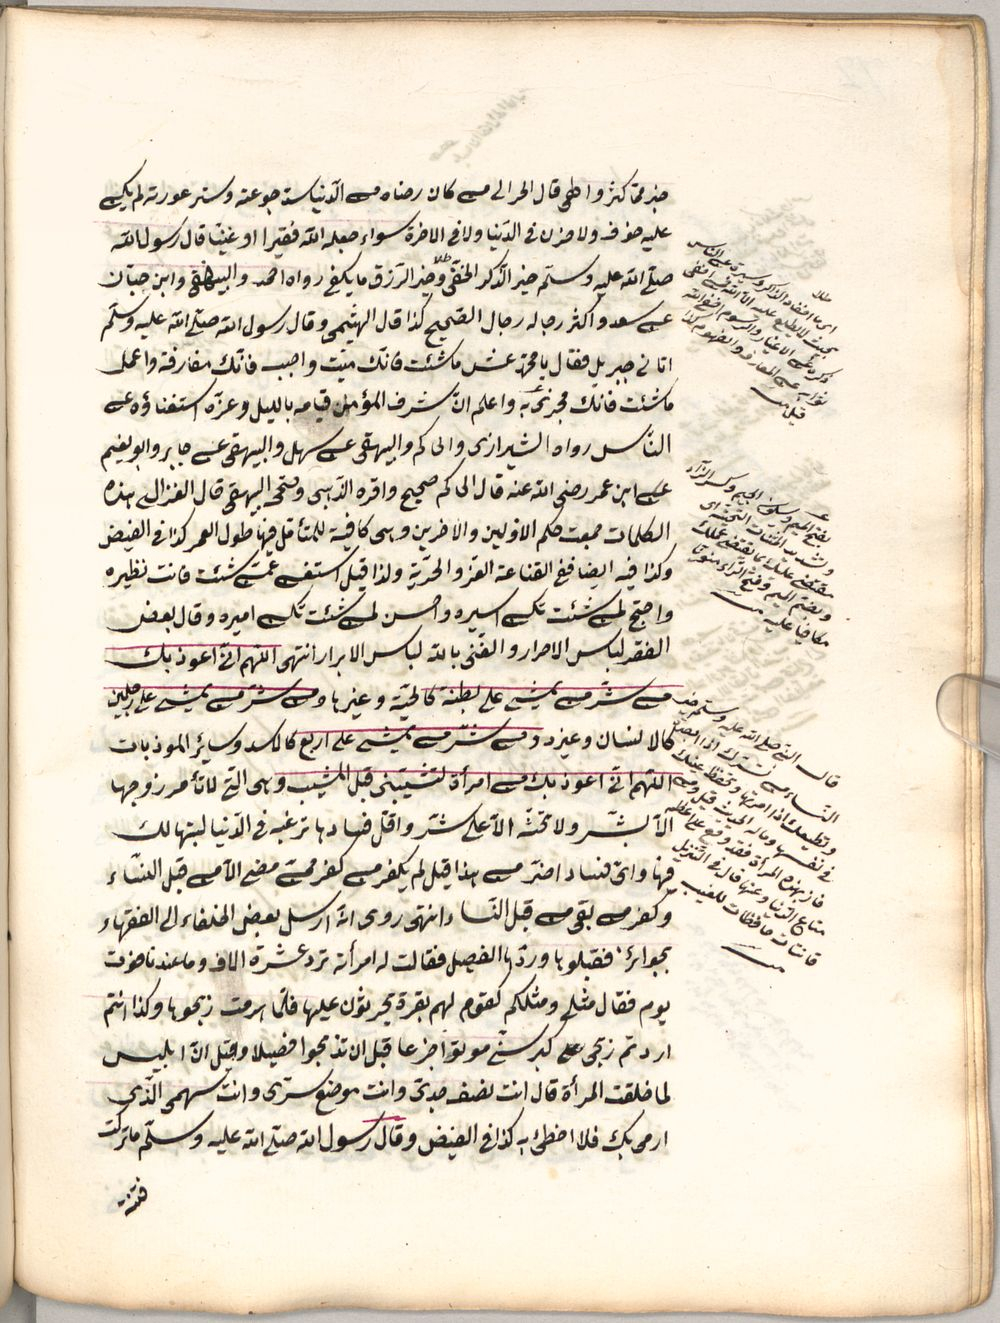 خير مما كثر والهى قال الحرالي من كان رضاه من الدنيا سد جوعته وستر عورته لم يكن
عليه خوف ولا حزن في الدنيا ولا في الآخرة سواء جعله الله فقيرا او غنيا قال رسول الله
صلى الله عليه وسلم خير الذكر الخفي وخير الرزق ما يكفي رواه احمد والبيهقي وابن حبان
عن سعد واكثر رجاله رجال الصحيح كذا قال الهيثمي وقال رسول الله صلى الله عليه وسلم
اتاني جبريل فقال يا محمد عش ما شئت فانك ميت واحبب فانك مفارقه واعمل
ما شئت فانك مجزي به واعلم ان شرف المؤمن قيامه بالليل وعزه استغناؤه عن
الناس رواه الشيرازي والحاكم والبيهقي عن سهل والبيهقي عن جابر وابو نعيم
عن ابن عمر رضي الله عنه قال الحاكم صحيح واقره الذهبي البيهقي قال الغزالي هذه
الكلمات جمعت حكم الاولين والآخرين وهي كافية للمتأمل فيها طول العمر كذا في الفيض
وكذا فيه ايضا ففي القناعة العز والحرية ولذا قيل استغن عمن شئت فانت نظيره
واحتج لمن شئت تكن اسيره واحسن لمن شئت تكن اميره وقال بعض
الفقر لباس الاحرار والغنى بالله لباس الابرار انتهى اللهم اني اعوذ بك
من شر من يمشي على بطنه كالحية وغيرها ومن شر من يمشي على رجلين
كالانسان وغيره ومن شر من يمشي على اربع كالاسد وسائر الموذيات
اللهم اني اعوذ بك من امرأة تشيبني قبل المشيب وهي التي لا تأمر زوجها
الا بشر ولا تحثه الا على شر واقل فسادها ترغبه في الدنيا ليتهالك
فيها واي فساد اضر من هذا قيل لم يكفر من كفر ممن مضى الا من قبل النساء
وكفر من بقي من قبل النساء انتهى روي انه ارسل بعض الخلفاء الى الفقهاء
بجوائز فقبلوها وردها الفضيل فقالت له امرأته ترد عشرة الاف وما عندنا قوت
يوم فقال مثلي ومثلكم كقوم لهم بقرة يحرثون عليها فلما هرمت ذبحوها وكذا انتم
اردتم ذبحي على كبر سني موتوا جزعا قبل ان تذبحوا فضيلا وقيل ان ابليس
لما خلقت المرأة قال انت نصف جندي وانت موضع سري وانت سهمي الذي
ارمي بك فلا اخطئ به كذا في الفيض وقال رسول الله صلى الله عليه وسلم ما تركت
فتنة
اي ما اخفاه الذاكر وسيره عن الناس
بحيث لا يطلع عليه الا الله
ذكره عن الاغيار والرسوم
بفتح الميم وسكون الجيم وكسر الزاء
وتشديد المثناة التحتية اي
مقتضى عليك بما يقتضيه عملك
وبضم الميم وفتح الزاء منونا
مكافيا عليه
قال النبي صلى الله عليه وسلم خير
النساء من تسرك اذا ابصرت
وتطيعك اذا امرتها وتحفظ غيبتك
في نفسها ومالك الحديث قيل ومن
فاز بهذه المرأة فقد وقع على اعظم
متاع الدنيا وعنها قال في التنزيل
قانتات حافظات للغيب